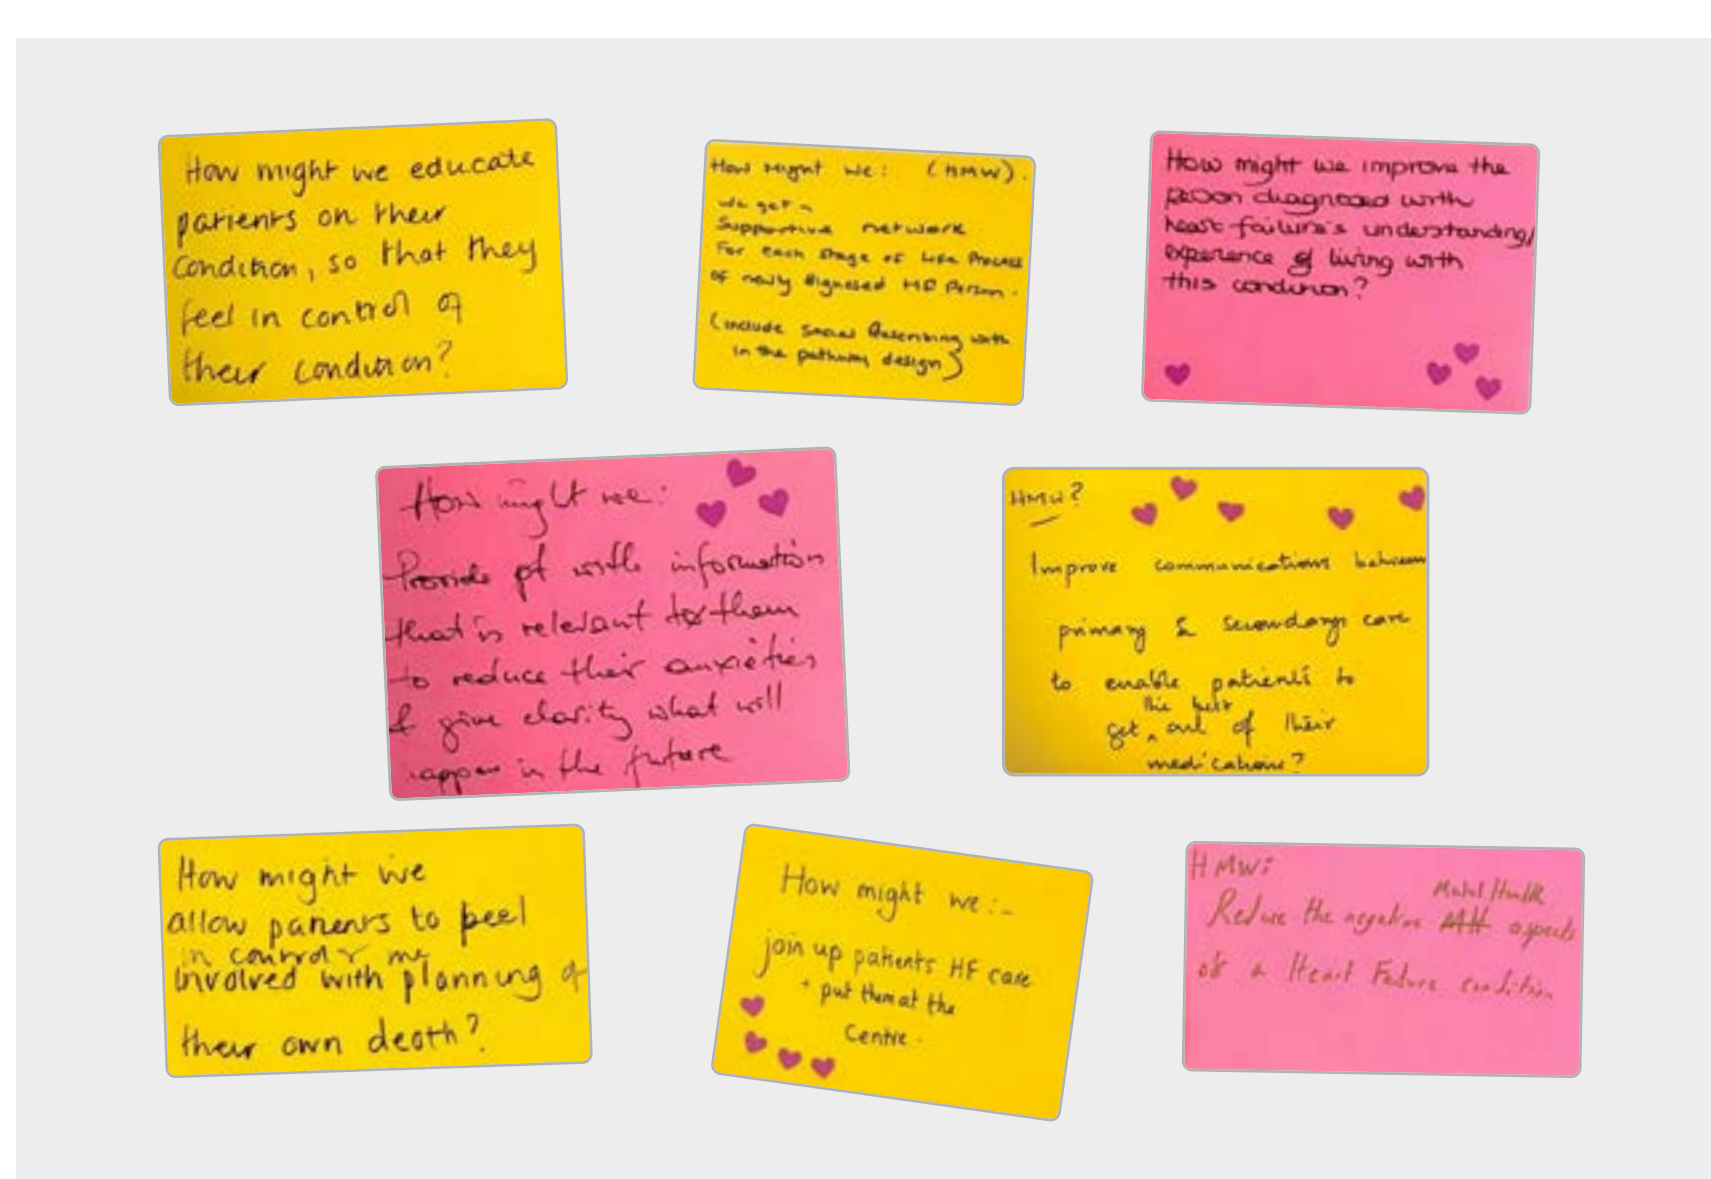 How might we educate
patients on their
condition, so that they
feel in control of
their condition?
How might we: (HMW).
we get a
Supportive network
For each stage of Life Process
of newly dignosed HF Person.
(include social Prescribing with
in the pathway design)
How might we improve the
person diagnosed with
heart failure's understanding/
experience of living with
this condition?
How might we:
Provide pt with information
that is relevant to them
to reduce their anxieties
& give clarity what will
appen in the future
HMW?
Improve communications between
primary & secondary care
to enable patients to
the best
get ^ out of their
medications?
How might we
allow patients to feel
in control &
involved with planning of
their own death?
How might we:-
join up patients HF care
+ put them at the
Centre.
HMW:
Mental Health
Reduce the negative MH aspects
of a Heart Failure condition